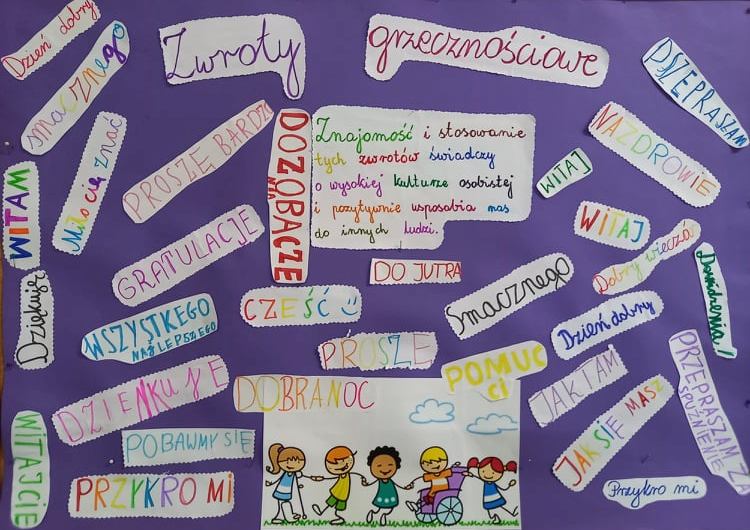 Dzień dobry
smacznego
Zwroty grzecznościowe
PSZEPRASZAM
Miło cię znać
PROSZĘ BARDZO
DOZOBACZE
NIA
Znajomość i stosowanie
tych zwrotów świadczy
o wysokiej kulturze osobistej
i pozytywnie usposabia nas
do innych ludzi.
WITAJ
NAZDROWIE
WITAM
GRATULACJE
WITAJ
DO JUTRA
Dobry wieczór
Dowidzenia!
Dziękuję
WSZYSTKEGO
NAJLEPSZEGO
CZEŚĆ
Smacznego
Dzień dobry
PROSZE
POMUC
ci
DZIENKUJE
DOBRANOC
JAK TAM
PRZEPRASZAM ZA
SPUŹNIENIE
WITAJCIE
POBAWMY SIĘ
JAK SIĘ MASZ
PRZYKRO MI
Przykro mi